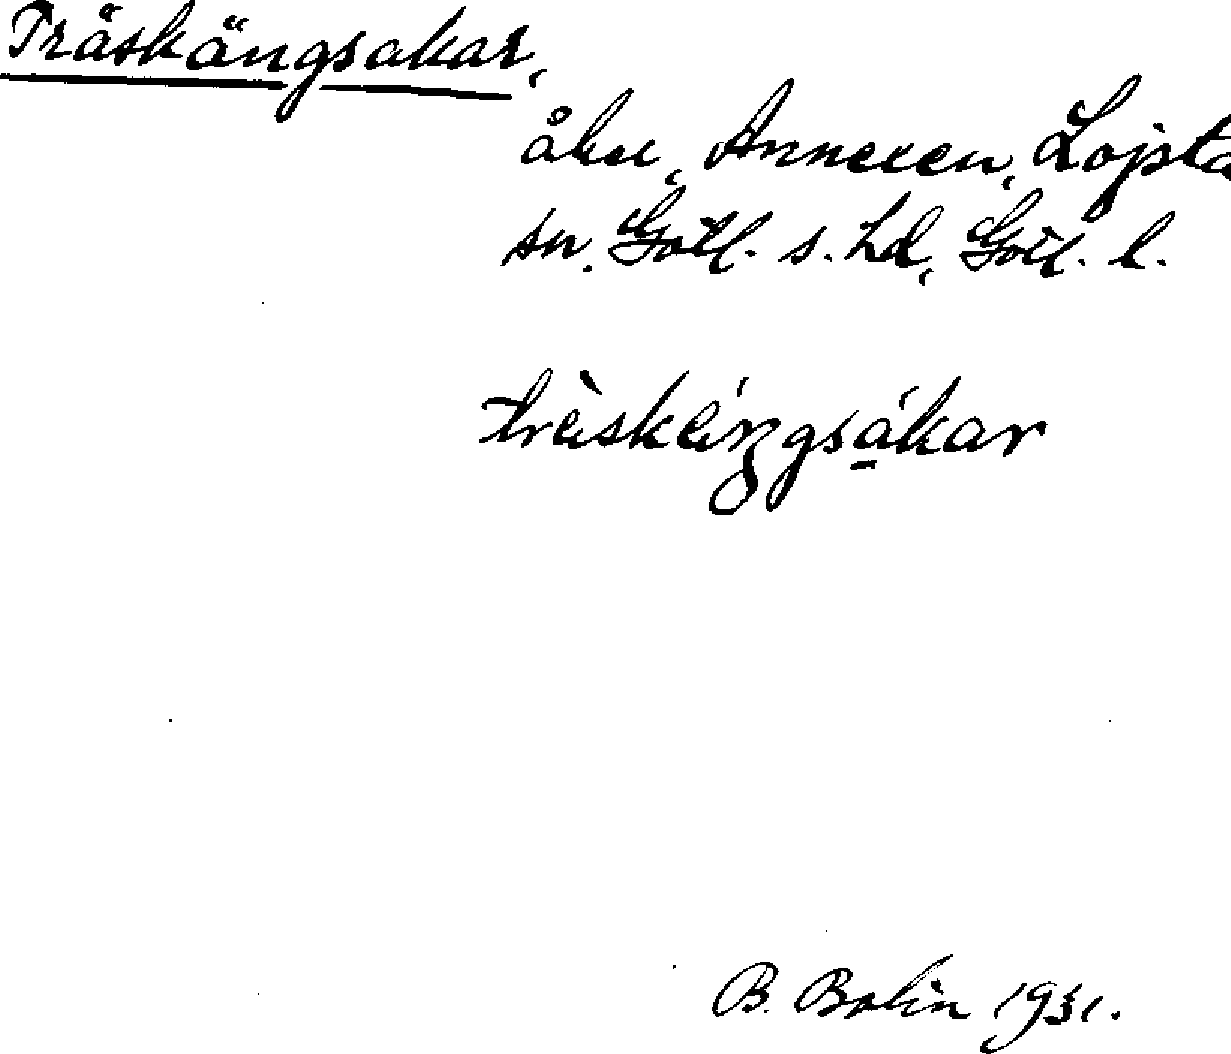 Träskängsakar,
åker, Annexen, Lojsta
sn. Gotl. s. hd, Gotl. l.
träskängsákar
B. Bolin 1931.